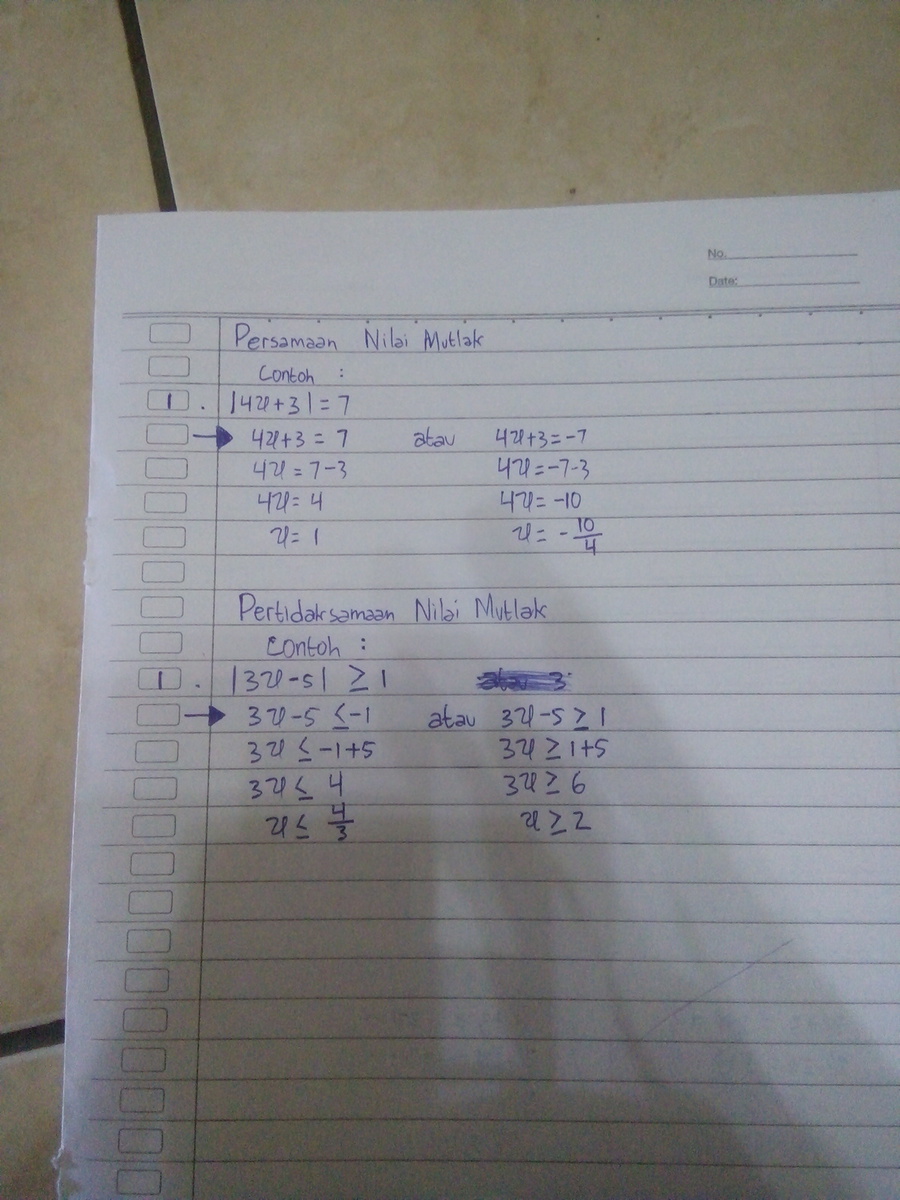 No.
Date:
Persamaan Nilai Mutlak
Contoh :
1. |4x+3| = 7
→ 4x+3 = 7 atau 4x+3=-7
4x = 7-3 4x=-7-3
4x= 4 4x= -10
x= 1 x= -10/4
Pertidaksamaan Nilai Mutlak
Contoh :
1. |3x-5| ≥ 1
→ 3x-5 ≤-1 atau 3x-5 ≥ 1
3x ≤ -1+5 3x ≥ 1+5
3x ≤ 4 3x ≥ 6
x ≤ 4/3 x ≥ 2